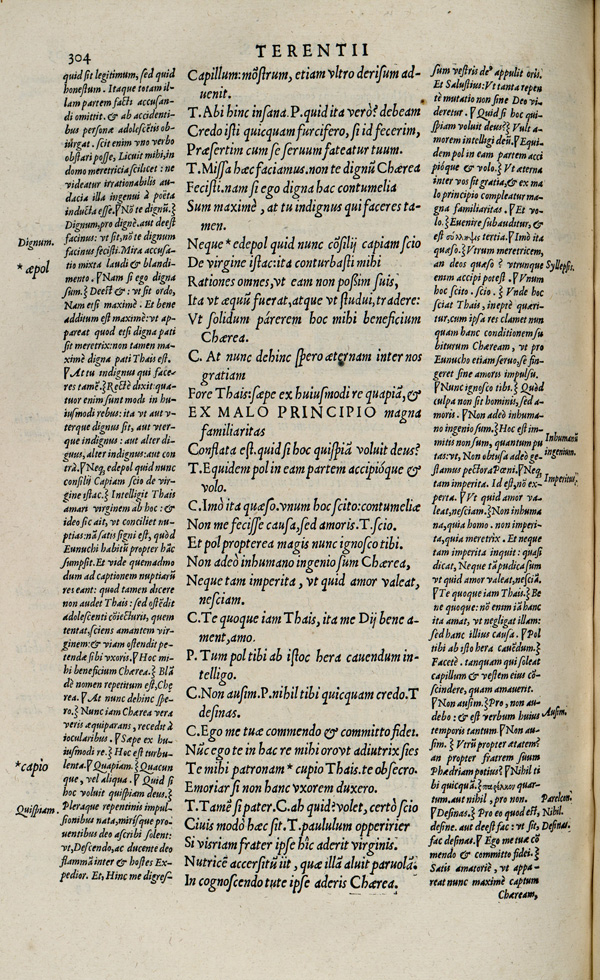 304
TERENTII
quid sit legitimum, sed quid
honestum. Itaque totam il-
lam partem facti accusan-
di omittit. & ab accidenti-
bus personæ adolescētis ob-
iurgat. scit enim vno verbo
obstari posse, Licuit mihi, in
domo meretricia scilicet: ne
videatur irrationabilis au-
dacia illa ingenui à poëta
inducta esse. ¶Nō te dignū.}
Dignum, pro dignè. aut deest
facinus: vt sit, nō te dignum
facinus fecisti. Mira accusa-
tio mixta laudi & blandi-
mento. ¶Nam si ego digna
sum.} Deest &: vt sit ordo,
Nam etsi maximè. Et bene
additum est maximè: vt ap-
pareat quod etsi digna pati
sit meretrix: non tamen ma-
ximè digna pati Thais est.
¶At tu indignus qui face-
res tamē.} Rectè dixit: qua-
tuor enim sunt modi in hu-
iusmodi rebus: ita vt aut v-
terque dignus sit, aut vter-
que indignus: aut alter di-
gnus, alter indignus: aut con
trà. ¶Neq; edepol quid nunc
consilij Capiam scio de vir-
gine istac.} Intelligit Thais
amari virginem ab hoc: &
ideo sic ait, vt conciliet nu-
ptias: nā satis signi est, quòd
Eunuchi habitū propter hāc
sumpsit. Et vide quemadmo
dum ad captionem nuptiarū
res eant: quod tamen dicere
non audet Thais: sed ostēdit
adolescenti cōiecturis, quem
tentat, sciens amantem vir-
ginem: & viam ostendit pe-
tendæ sibi vxoris. ¶Hoc mi-
hi beneficium Chærea.} Blā
dè nomen repetitum est, Chæ
rea. ¶At nunc dehinc spe-
ro.} Nunc iam Chærea vera
veris æquiparans, recedit à
iocularibus. ¶Sæpe ex hu-
iusmodi re.} Hoc est turbu-
lenta. ¶Quapiam.} Quacun
que, vel aliqua. ¶Quid si
hoc voluit quispiam deus.}
Pleraque repentinis impul-
sionibus nata, mirisque pro-
uentibus deo ascribi solent:
vt, Descendo, ac ducente deo
flammā inter & hostes Ex-
pedior. Et, Hinc me digres-
Dignum.
* æpol
*capio
Quispiam.
Capillum: mōstrum, etiam vltro derisum ad-
uenit.
T. Abi hinc insana. P. quid ita verò? debeam
Credo isti quicquam furcifero, si id fecerim,
Præsertim cum se seruum fateatur tuum.
T. Missa hæc faciamus. non te dignū Chærea
Fecisti. nam si ego digna hac contumelia
Sum maximè, at tu indignus qui faceres ta-
men.
Neque * edepol quid nunc cōsilij capiam scio
De virgine istac: ita conturbasti mihi
Rationes omnes, vt eam non possim suis,
Ita vt æquū fuerat, atque vt studui, tradere:
Vt solidum párerem hoc mihi beneficium
Chærea.
C. At nunc dehinc spero æternam inter nos
gratiam
Fore Thais: sæpe ex huiusmodi re quapiā, &
EX MALO PRINCIPIO magna
familiaritas
Constata est. quid si hoc quispiā voluit deus?
T. Equidem pol in eam partem accipióque &
volo.
C. Imò ita quæso. vnum hoc scito: contumeliæ
Non me fecisse causa, sed amoris. T. scio.
Et pol propterea magis nunc ignosco tibi.
Non adeò inhumano ingenio sum Chærea,
Neque tam imperita, vt quid amor valeat,
nesciam.
C. Te quoque iam Thais, ita me Dij bene a-
ment, amo.
P. Tum pol tibi ab istoc hera cauendum in-
telligo.
C. Non ausim. P. nihil tibi quicquam credo. T
desinas.
C. Ego me tuæ commendo & committo fidei.
Nūc ego te in hac re mihi oro vt adiutrix sies
Te mihi patronam * cupio Thais. te obsecro.
Emoriar si non hanc vxorem duxero.
T. Tamē si pater. C. ah quid? volet, certò scio
Ciuis modò hæc sit. T. paululum opperirier
Si vis: iam frater ipse hîc aderit virginis.
Nutricē accersitū iit, quæ illā aluit paruolā.
In cognoscendo tute ipse aderis Chærea.
sum vestris deꝰ appulit oris.
Et Salustius: Vt tanta repen
tè mutatio non sine Deo vi-
deretur. ¶Quid si hoc qui-
spiam voluit deus?} Vult a-
morem intelligi deū. ¶Equi-
dem pol in eam partem acci
pióque & volo.} Vt æterna
inter vos sit gratia, & ex ma
lo principio compleatur ma-
gna familiaritas. ¶Et vo-
lo.} Euenire subauditur, &
est tertia. ¶Imò ita
quæso.} Vtrum meretricem,
an deos quæso? vtrunque
enim accipi potest. ¶Vnum
hoc scito. scio.} Vnde hoc
sciat Thais, ineptè quæri-
tur, cum ipsa res clamet nun
quam hanc conditionem su
biturum Chæream, vt pro
Eunucho etiam seruo, se fin-
geret sine amoris impulsu.
¶Nunc ignosco tibi.} Quòd
culpa non sit hominis, sed a-
moris. ¶Non adeò inhuma-
no ingenio sum.} Hoc est im-
mitis non sum, quantum pu
tas: vt, Non obtusa adeò ge-
stamus pectora Pœni. ¶Neq;
tam imperita. Id est, nō ex-
perta. ¶Vt quid amor va-
leat, nesciam.} Non inhuma
na, quia homo. non imperi-
ta, quia meretrix. Et neque
tam imperita inquit: quasi
dicat, Neque tā pudica sum
vt quid amor valeat, nesciā.
¶Te quoque iam Thais.} Be
ne quoque: nō enim iā hanc
ita amat, vt negligat illam:
sed hanc illius causa. ¶Pol
tibi ab isto hera cauēdum.}
Facetè. tanquam qui soleat
capillum & vestem eius cō-
scindere, quam amauerit.
¶Non ausim.} Pro, non au-
debo: & est verbum huius
temporis tantum. ¶Non au-
sim.} Vtrū propter ætatem?
an propter fratrem suum
Phædriam potius? ¶Nihil ti
bi quicquā.} παρέλκον quar-
tum. aut nihil, pro non.
¶Desinas.} Pro eo quod est,
define. aut deest fac: vt sit,
fac desinas. ¶Ego me tuæ cō
mendo & committo fidei.}
Satis amatoriè, vt appa-
reat nunc maximè captum
Chæream,
Syllepsis.
Inhumanū
ingenium.
Imperitus.
Ausim.
Parelcon.
Nihil.
Desinas.